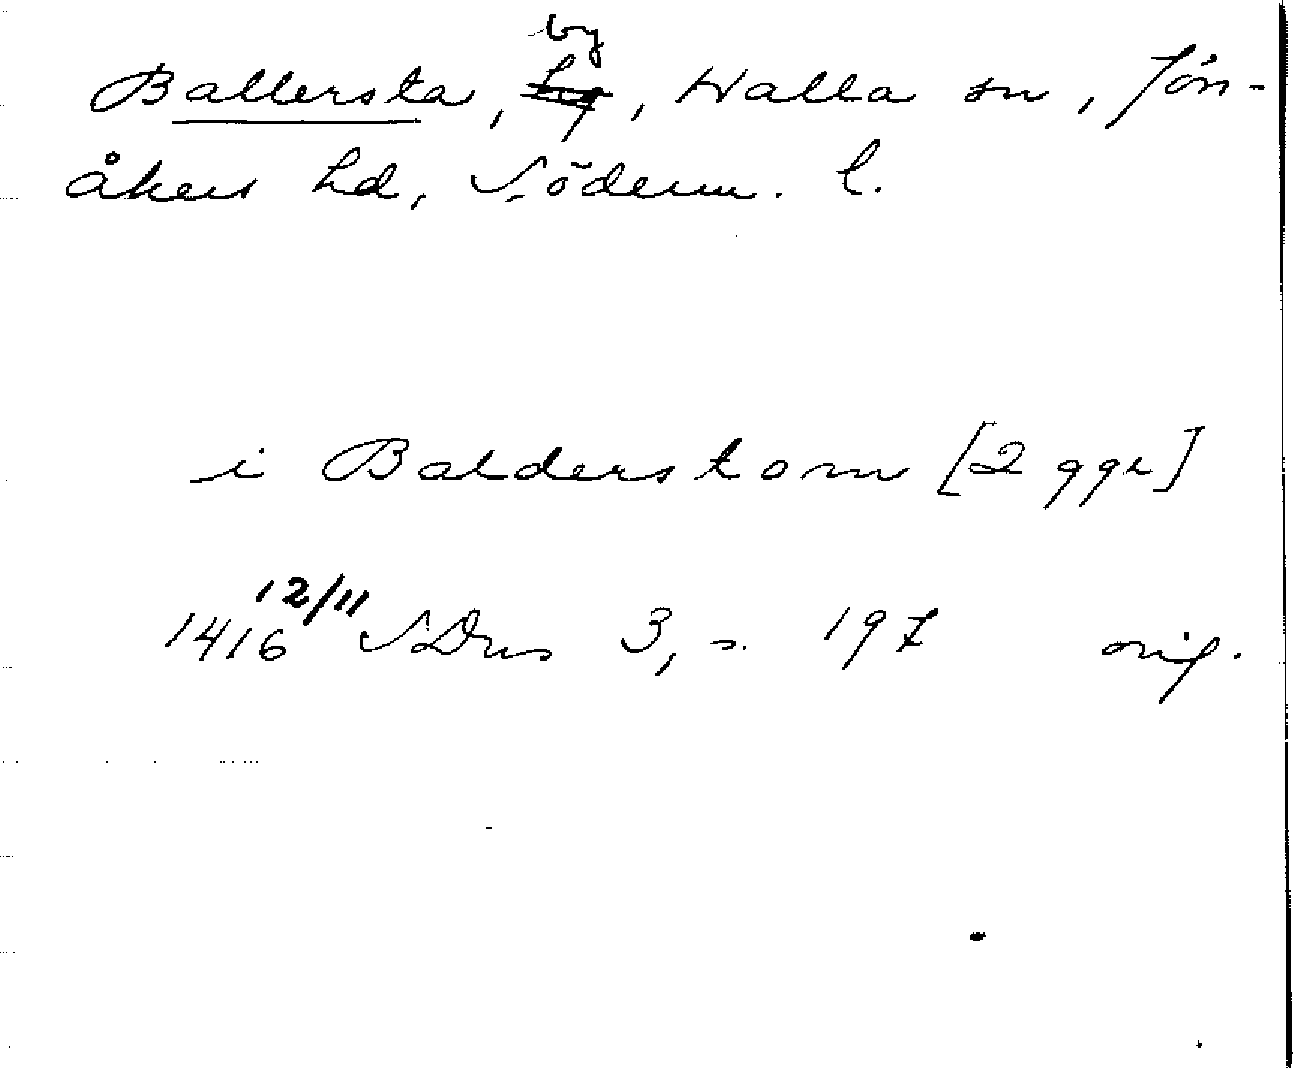 by
Ballersta, hg, Walla sn, Jön-
åkers hd, Söderm. l.
i Balderstom [2 ggr]
1416 12/11 SDns 3, s. 197 orig.